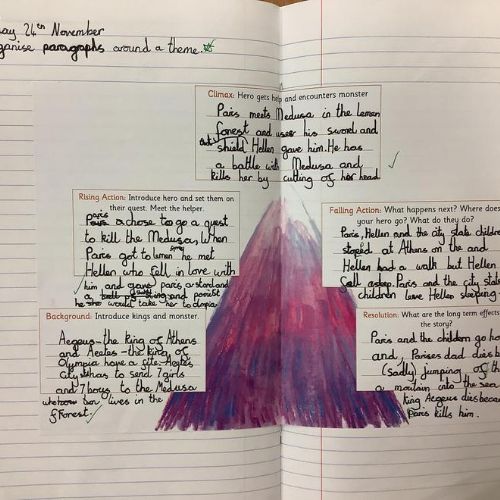 ay 24th November
ganise paragraphs around a theme.
Climax: Hero gets help and encounters monster
Paris meets Medusa in the lemon
forest and uses his sword and
shield Hellen gave him. He has
a battle with Medusa and
kills her by cutting of her head
Rising Action: Introduce hero and set them on
their quest. Meet the helper.
Paris chose to go a quest
to kill the Medusa, When
Paris got to he met
Hellen who fell in love with
him and gave paris a sword and
a
he would take her to
Background: Introduce kings and monster.
Aegeus-the king of Athens
and Aeetes-the king of
Olympia have a
city has to send 7 girls
and 7 boys to the Medusa
lives in the
forest.
Falling Action: What happens next? Where does
your hero go? What do they do?
Paris, Hellen and the city state children
stoped at Athens on the and
Hellen had a walk but Hellen
fell asleep. Paris and the city state
children leave Hellen sleeping
Resolution: What are the long term effects
the story?
Paris and the children go ho
and, Parises dad dies
(sadly) jumping of th
a mountain into the sea
king Aegeus dies becau
Paris kills him.